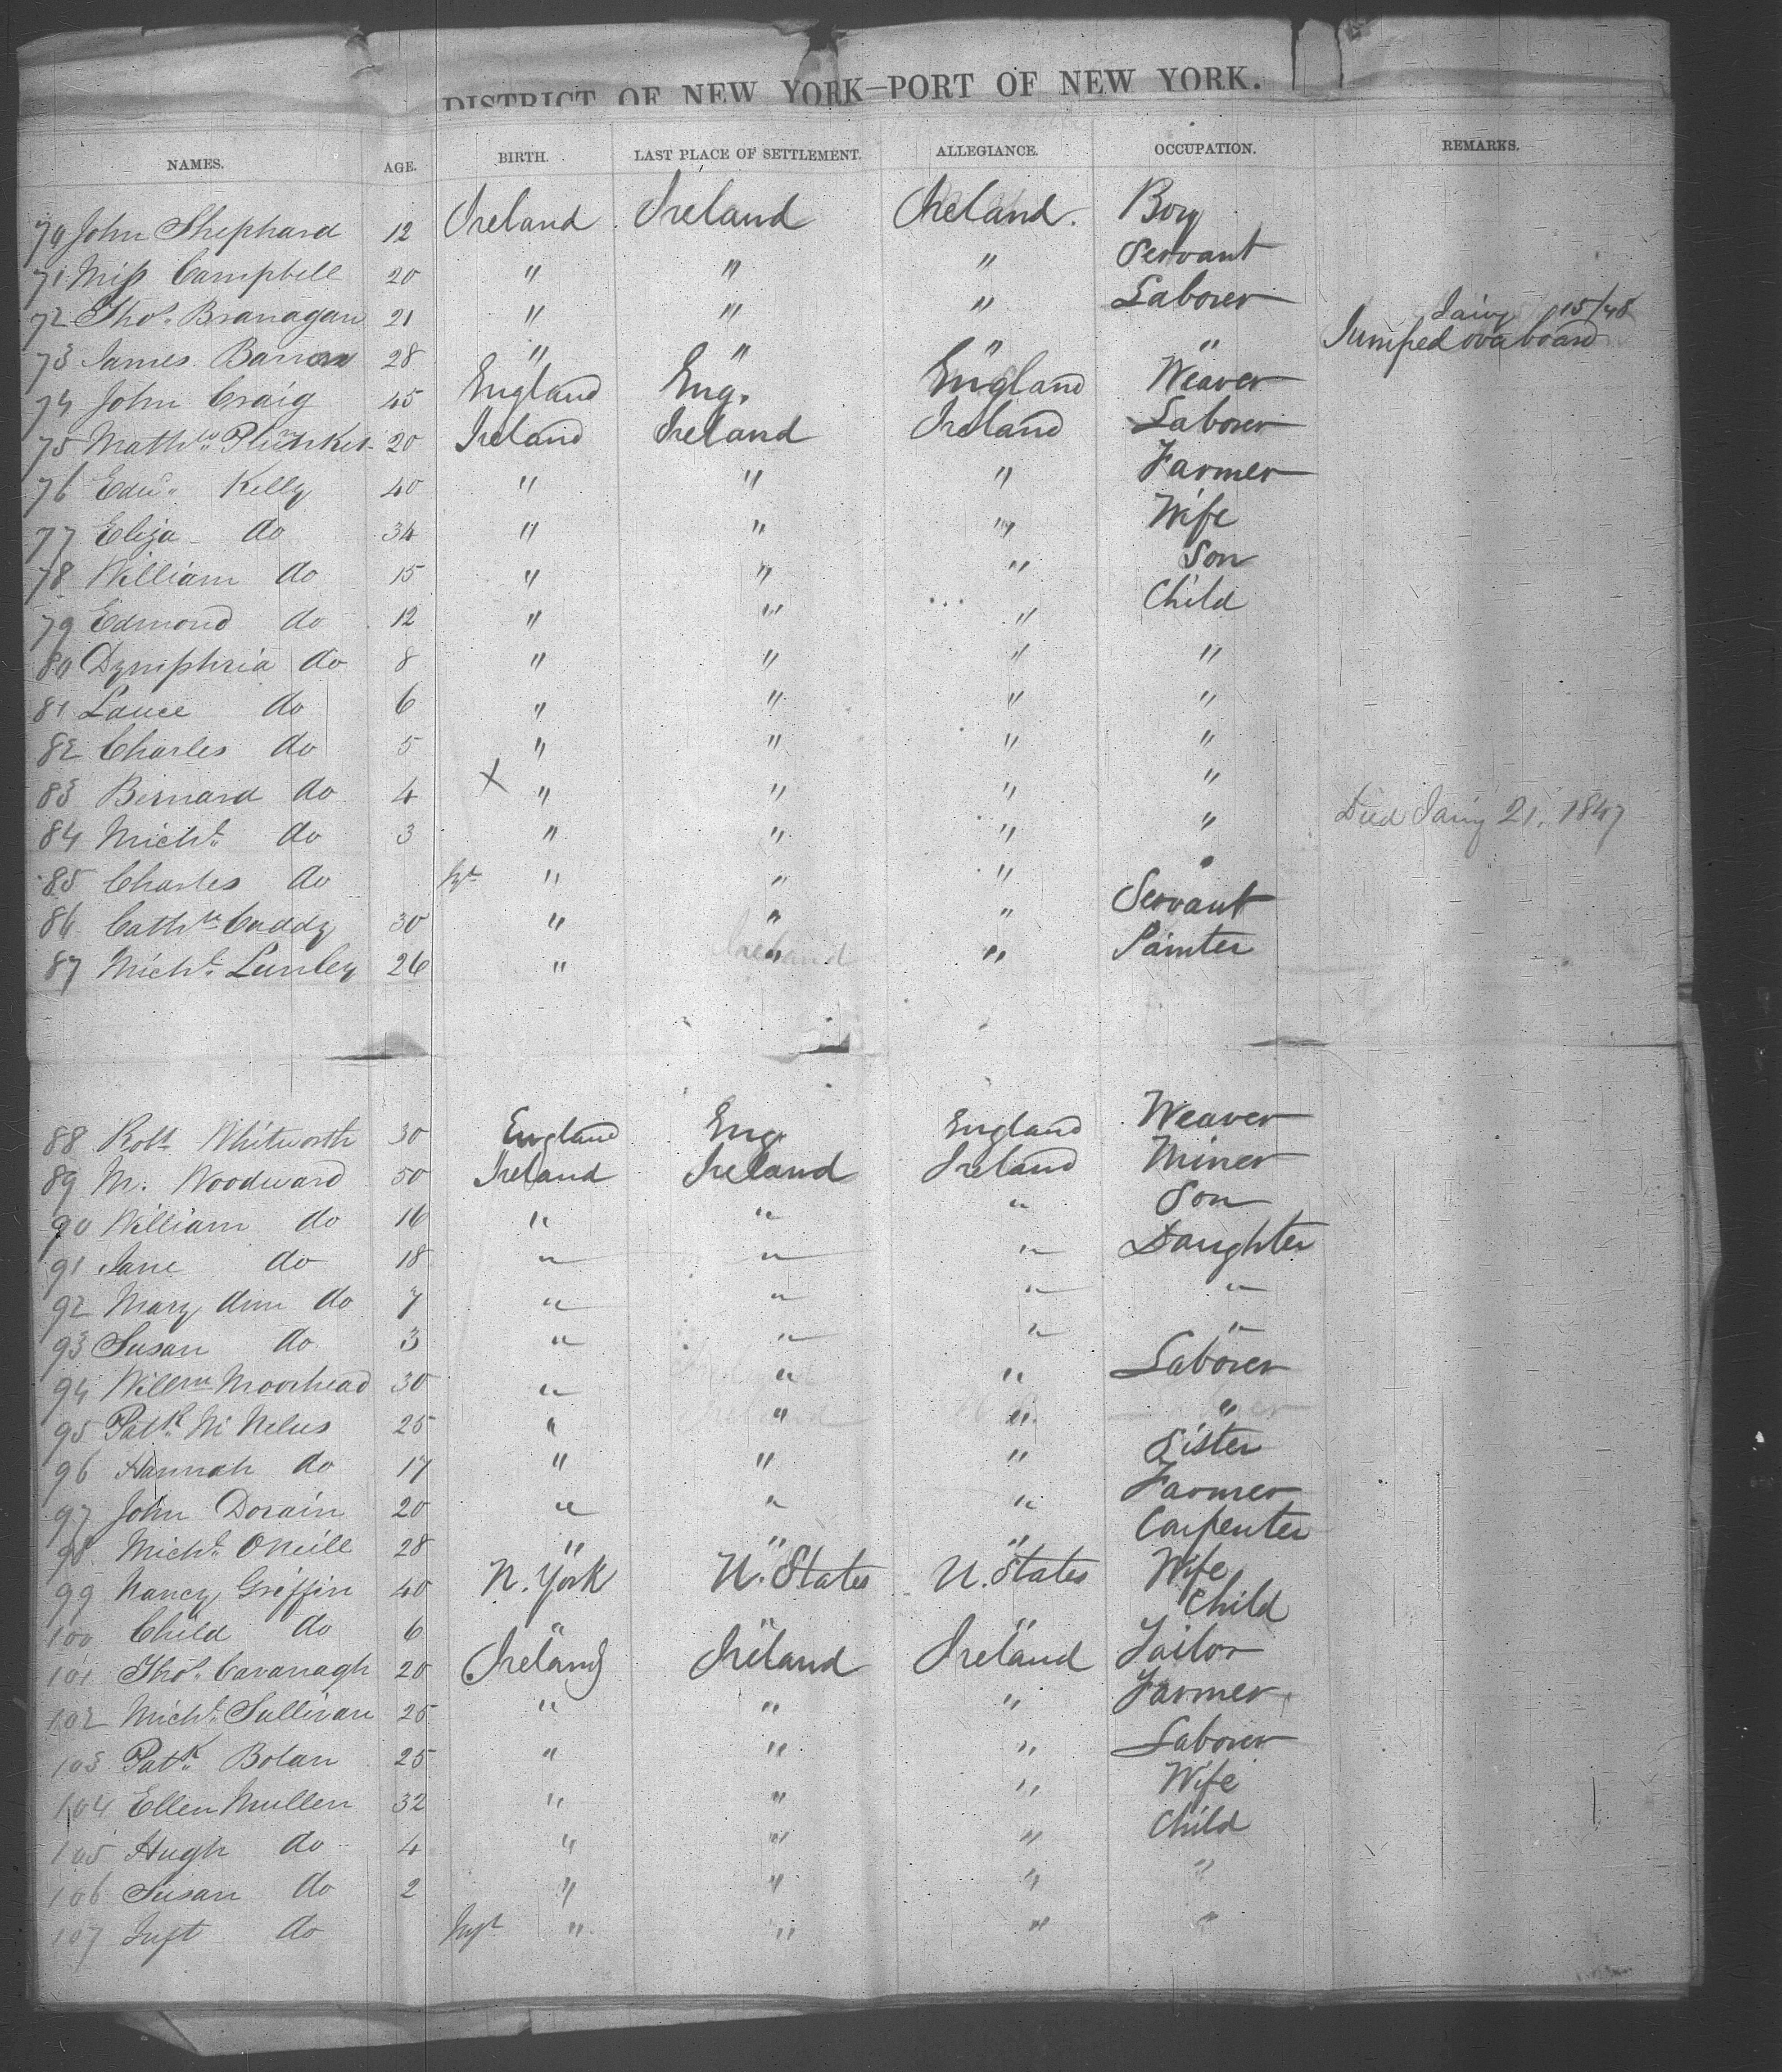 DISTRICT OF NEW YORK—PORT OF NEW YORK.
NAMES. AGE. BIRTH. LAST PLACE OF SETTLEMENT. ALLEGIANCE. OCCUPATION. REMARKS.
70 John Shephard 12 Ireland Ireland Ireland. Boy
71 Miss Campbell 20 " " " Servant
72 Thos. Branagan 21 " " " Laborer
73 James 28 " " " " Jumped overboard Jany 15/48
74 John Craig 45 England Eng. England Weaver
75 Mathw. Plunket 20 Ireland Ireland Ireland Laborer
76 Edwd. Kelly 40 " " " Farmer
77 Eliza do 34 " " " Wife
78 William do 15 " " " Son
79 Edmond do 12 " " " Child
80 Dymphria do 8 " " " "
81 do 6 " " " "
82 Charles do 5 " " " "
83 Bernard do 4 X " " " "
84 Michl. do 3 " " " " Died Jany 21, 1847
85 Charles do Inft " " " "
86 Cathne Cuddy 30 " " " Servant
87 Michl. Lunley 26 " " " Painter
88 Robt Whitworth 30 England Eng. England Weaver
89 M. Woodward 50 Ireland Ireland Ireland Miner
90 William do 16 " " " Son
91 Jane do 18 " " " Daughter
92 Mary Ann do 7 " " " "
93 Susan do 3 " " " "
94 Willm Moorhead 30 " " " Laborer
95 Patk. Mc Nelus 25 " " " "
96 Hannah do 17 " " " Sister
97 John Dorain 20 " " " Farmer
98 Michl. ONeill 28 " " " Carpenter
99 Nancy Griffin 40 N. York U. States U. States Wife
100 Child do 6 " " " Child
101 Thos. Cavanagh 20 Ireland Ireland Ireland Tailor
102 Michl. Sullivan 25 " " " Farmer
103 Patk. Bolan 25 " " " Laborer
104 Ellen Mullen 32 " " " Wife
105 Hugh do 4 " " " Child
106 Susan do 2 " " " "
107 Inft do Inft " " " "